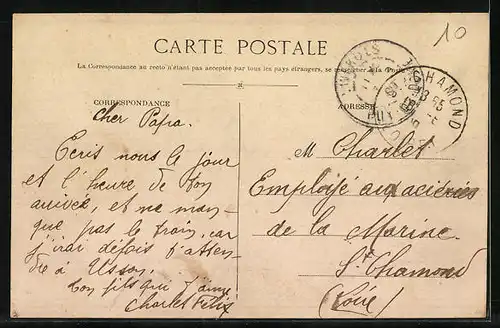 10
CARTE POSTALE
La Correspondance au recto n'étant pas acceptée par tous les pays étrangers, se
CORRESPONDANCE
ADRESSE
CHAMOND
Cher Papa.
Ecris nous le jour
et l'heure de ton
arrivée, et ne man-
que pas le train, car
j'irai t'atten-
dre à Usson.
ton fils qui t'aime
Charlet Félix
M Charlet
Employé aux aciéries
de la Marine
St Chamond
(Loire)